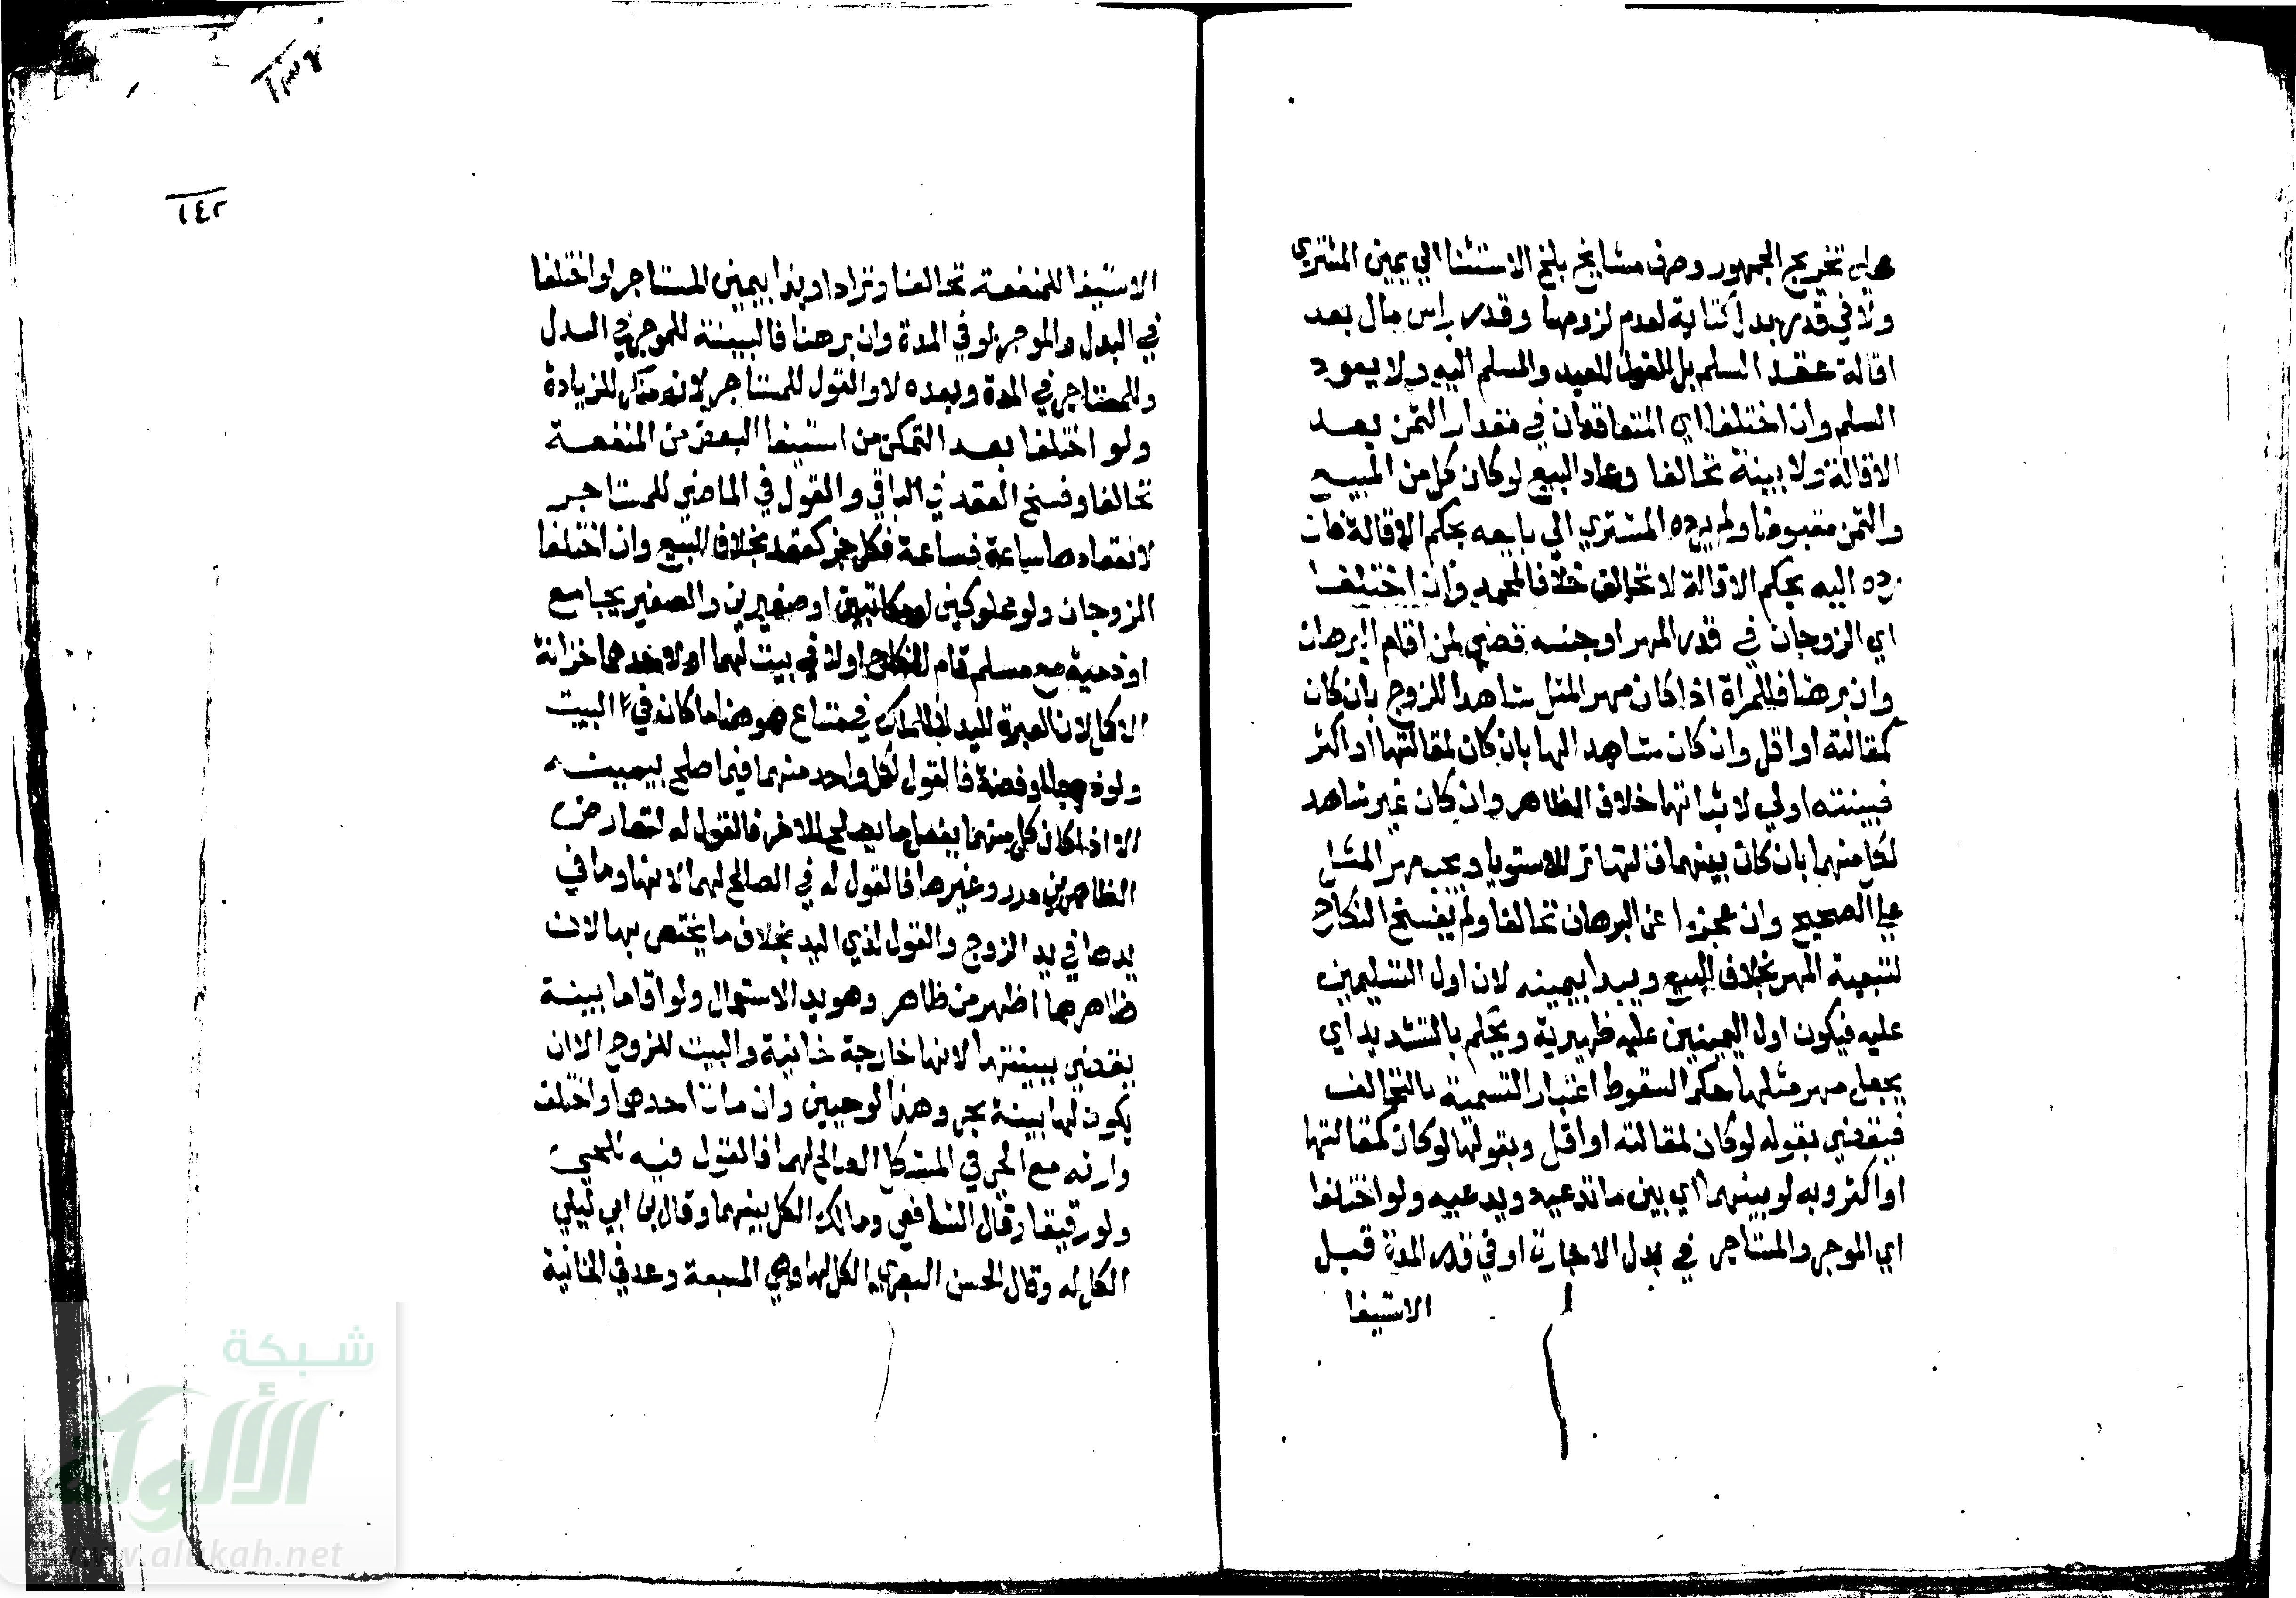 على تخريج الجمهور وصرف مشايخ بلخ الاستثنا الي يمين المشتري
ولا في قدر بدل كتابة لعدم لزومها وقدر راس مال بعد
اقالة عقد السلم بل القول للعبد والمسلم اليه ولا يعود
السلم وان اختلفا اي المتعاقدان في مقدار الثمن بعد
الاقالة ولا بينة تحالفا وعاد البيع لو كان كل من المبيع
والثمن مقبوضا ولم يرده المشتري الي بايعه بحكم الاقالة فان
رده اليه بحكم الاقالة لا تحالف خلافا لمحمد وان اختلفا
اي الزوجان في قدر المهر او جنسه قضي لمن اقام البرهان
وان برهنا فللمراة اذا كان مهر المثل شاهدا للزوج بان كان
كمقالته او اقل وان كان شاهدا لها بان كان لمقالتها او اكثر
فبينته اولي لاثباتها خلاف الظاهر وان كان غير شاهد
لكل منهما بان كان بينهما فالتهاتر للاستوا ويجب مهر المثل
علي الصحيح وان عجزوا عن البرهان تحالفا ولم يفسخ النكاح
لتبعية المهر بخلاف البيع ويبدا بيمينه لان اول التسليمين
عليه فيكون اول اليمينين عليه ظهيرية ويحكم بالتشديد اي
يجعل مهر مثلها حكما لسقوط اعتبار التسمية بالتحالف
فيقضي بقوله لو كان لمقالته او اقل وبقولها لو كان كمقالتها
او اكثر وبه لو بينهما اي بين ما تدعيه ويدعيه ولو اختلفا
اي الموجر والمستاجر في بدل الاجارة او في قدر المدة قبل
الاستيفا
١٣٩
١٤٢
الاستيفا للمنفعة تحالفا وترادا وبدا بيمين المستاجر لو اختلفا
في البدل والموجر لو في المدة وان برهنا فالبينة للموجر في البدل
وللمستاجر في المدة وبعده لا والقول للمستاجر لانه منكر للزيادة
ولو اختلفا بعد التمكن من استيفا البعض من المنفعة
تحالفا وفسخ العقد في الباقي والقول في الماضي للمستاجر
لانعقادها ساعة فساعة فكل جز كعقد بخلاف البيع وان اختلفا
الزوجان ولو مملوكين او مكاتبين او صغيرين والصغير يجامع
او ذمية مع مسلم قام النكاح اولا في بيت لهما او لاحدهما خزانة
الاكمل لان العبرة لليد لا للملك في متاع هو هنا ما كان في البيت
ولو ذهبا او فضة فالقول لكل واحد منهما فيما صلح بيمينه
الا اذا كان كل منهما يفعل ما يصلح للاخر فالقول له لتعارض
الظاهرين درر وغيرها فالقول له في الصالح لهما لانها وما في
يدها في يد الزوج والقول لذي اليد بخلاف ما يختص بها لان
ظاهرها اظهر من ظاهر وهو يد الاستعمال ولو اقاما بينة
يقضي ببينتها لانها خارجة خانية والبيت للزوج الا ان
يكون لها بينة بحر وهذا لو حيين وان مات احدهما واختلف
وارثه مع الحي في المشكل الصالح لهما فالقول فيه للحي
ولو رقيقا وقال الشافعي ومالك الكل بينهما وقال بن ابي ليلي
الكل له وقال الحسن البصري الكل لها وهي المسبعة وعد في الخانية
شبكة
الألوكة
www.alukah.net